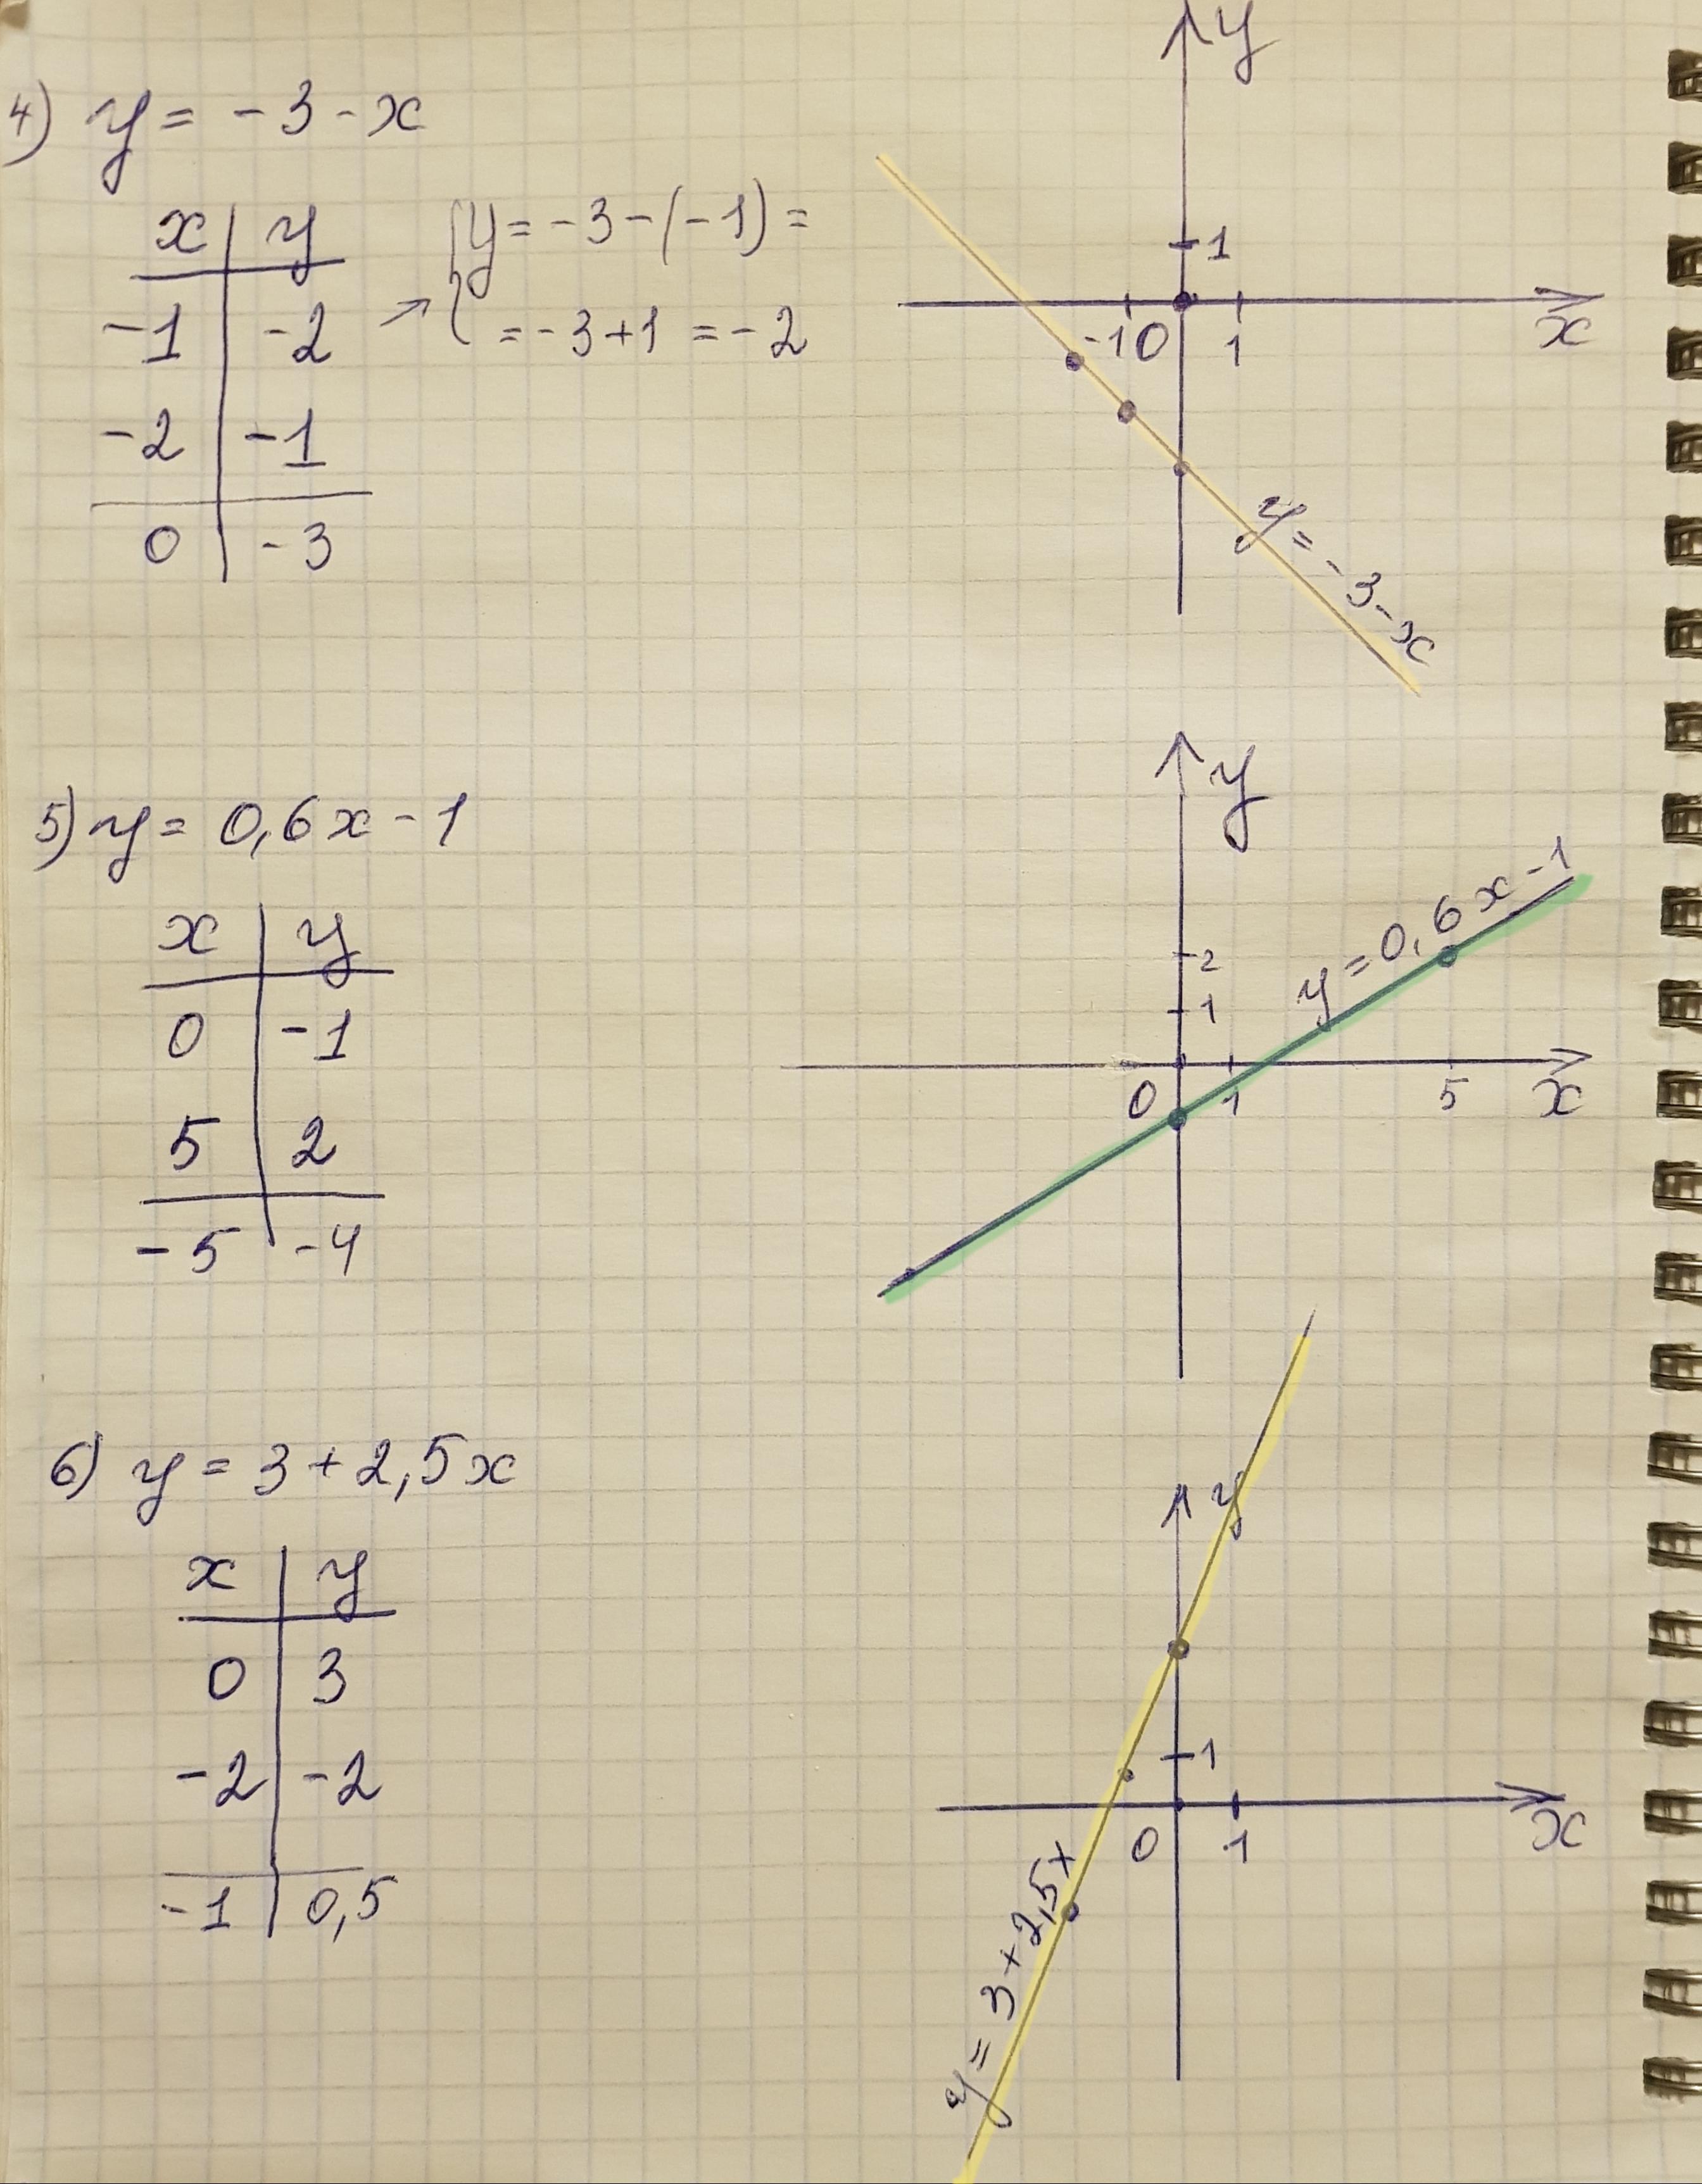 4) y = -3 - x
x | y
-1 | -2 → { y = -3 - (-1) =
= -3 + 1 = -2
-2 | -1
0 | -3
y
1
-1 0 1 x
y = -3 - x
5) y = 0,6x - 1
x | y
0 | -1
5 | 2
-5 | -4
y
y = 0,6x - 1
2
1
0 1 5 x
6) y = 3 + 2,5x
x | y
0 | 3
-2 | -2
-1 | 0,5
y
1
0 1 x
y = 3 + 2,5x